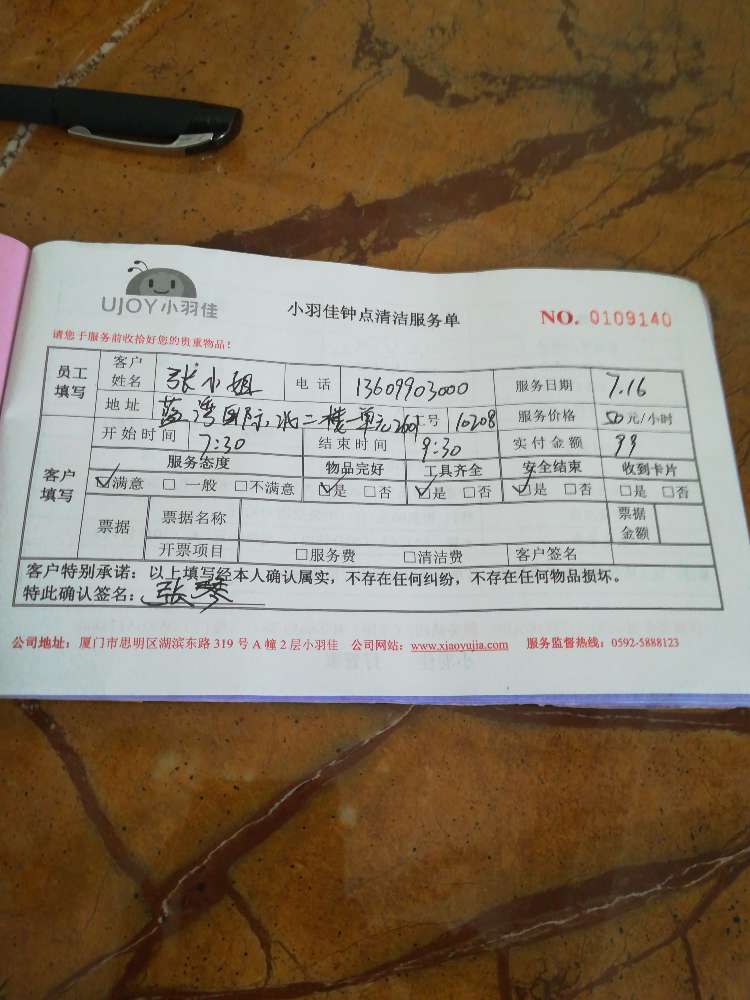 UJOY小羽佳
小羽佳钟点清洁服务单 NO. 0109140
请您于服务前收拾好您的贵重物品！
员工填写 客户姓名 张小姐 电话 13609903000 服务日期 7.16
地址 蓝湾国际 二楼一单元2601 工号 10208 服务价格 50元/小时
开始时间 7:30 结束时间 9:30 实付金额 99
客户填写 服务态度 物品完好 工具齐全 安全结束 收到卡片
☑满意 □一般 □不满意 ☑是 □否 ☑是 □否 ☑是 □否 □是 □否
票据 票据名称 票据金额
开票项目 □服务费 □清洁费 客户签名
客户特别承诺：以上填写经本人确认属实，不存在任何纠纷，不存在任何物品损坏。
特此确认签名：张琴
公司地址：厦门市思明区湖滨东路319号A幢2层小羽佳 公司网站：www.xiaoyujia.com 服务监督热线：0592-5888123